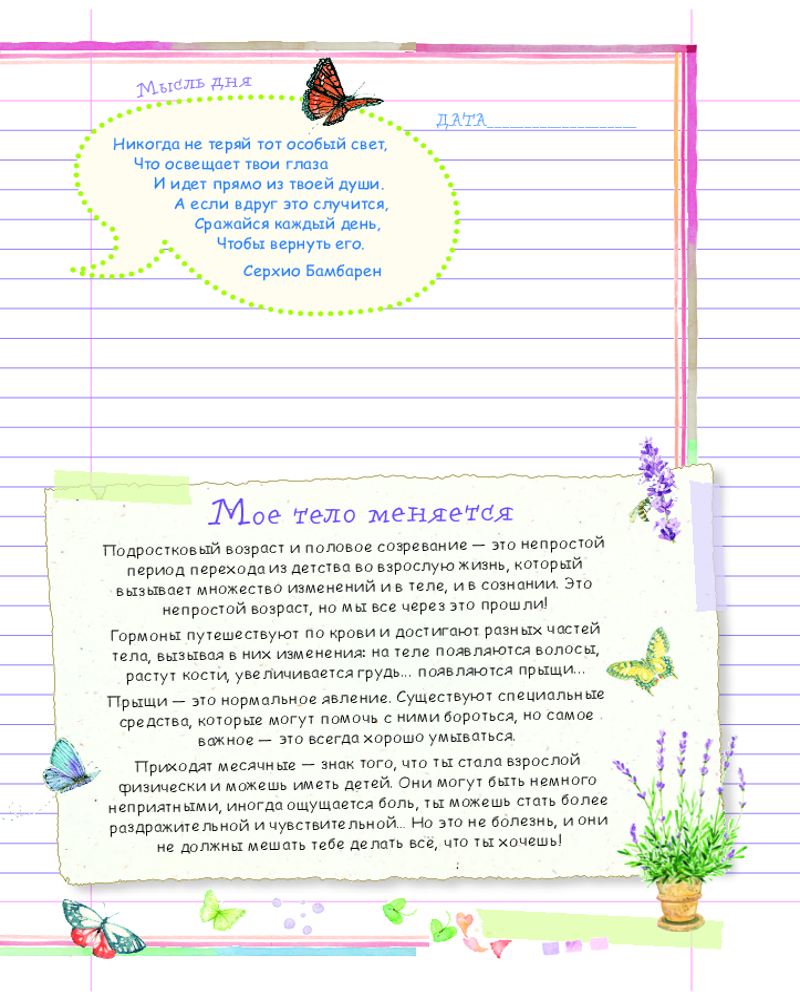 Мысль дня
ДАТА____________________
Никогда не теряй тот особый свет,
Что освещает твои глаза
И идет прямо из твоей души.
А если вдруг это случится,
Сражайся каждый день,
Чтобы вернуть его.
Серхио Бамбарен
Мое тело меняется
Подростковый возраст и половое созревание — это непростой
период перехода из детства во взрослую жизнь, который
вызывает множество изменений и в теле, и в сознании. Это
непростой возраст, но мы все через это прошли!
Гормоны путешествуют по крови и достигают разных частей
тела, вызывая в них изменения: на теле появляются волосы,
растут кости, увеличивается грудь... появляются прыщи...
Прыщи — это нормальное явление. Существуют специальные
средства, которые могут помочь с ними бороться, но самое
важное — это всегда хорошо умываться.
Приходят месячные — знак того, что ты стала взрослой
физически и можешь иметь детей. Они могут быть немного
неприятными, иногда ощущается боль, ты можешь стать более
раздражительной и чувствительной... Но это не болезнь, и они
не должны мешать тебе делать всё, что ты хочешь!